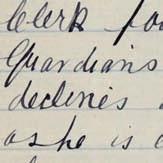 Clerk for
Guardians
declines
as he is